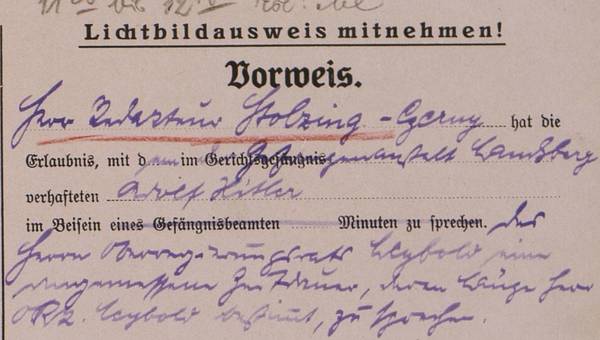 11⁰⁰ bis 12
Lichtbildausweis mitnehmen!
Vorweis.
Herr Redakteur Stolzing-Czerny hat die
Erlaubnis, mit dem in der Gerichtsgefängnis Gefangenenanstalt Landsberg
verhafteten Adolf Hitler
im Beisein eines Gefängnisbeamten Minuten zu sprechen. des
Herrn Oberregierungsrats Leybold eine
angemessene Zeitdauer, deren Länge Herr
ORR. Leybold bestimmt, zu sprechen.